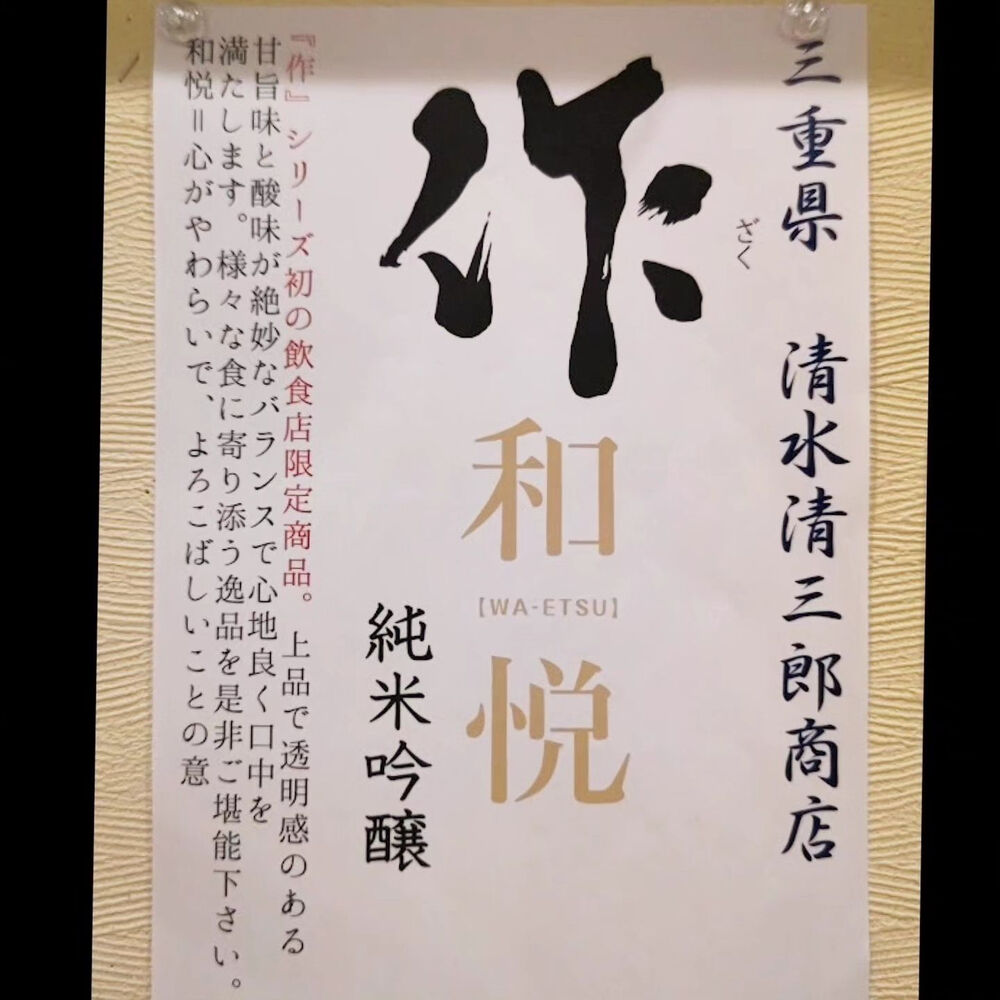 三重県 清水清三郎商店
ざく
作
和悦
【WA-ETSU】
純米吟醸
『作』シリーズ初の飲食店限定商品。上品で透明感のある
甘旨味と酸味が絶妙なバランスで心地良く口中を
満たします。様々な食に寄り添う逸品を是非ご堪能下さい。
和悦=心がやわらいで、よろこばしいことの意